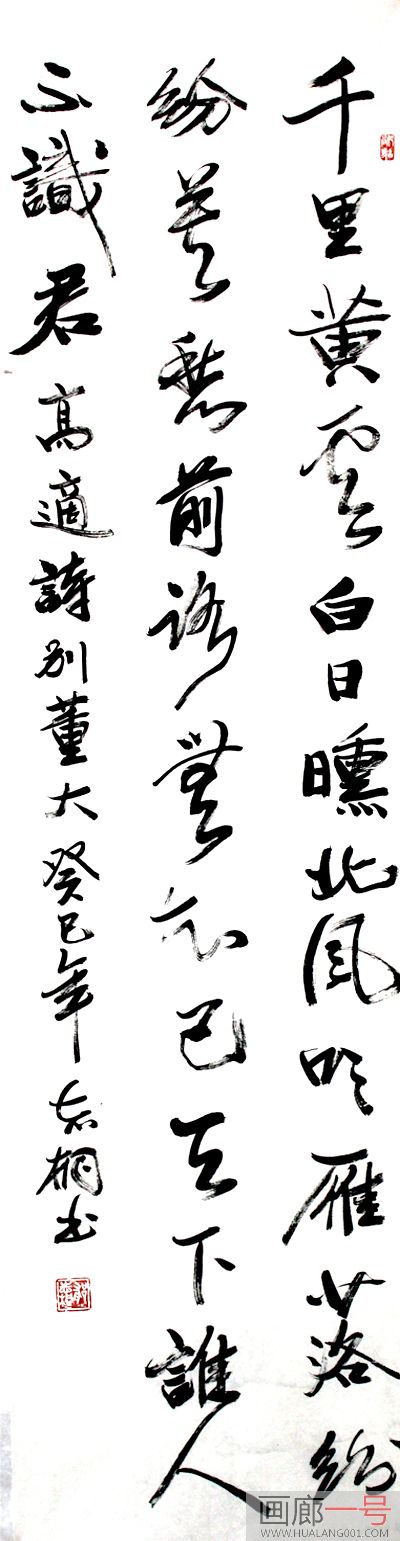 千里黄雲白日曛北風吹雁落紛
紛莫愁前路無知己天下誰人
不識君 高適詩別董大 癸巳年 桐書
画廊一号
WWW.HUALANG001.COM